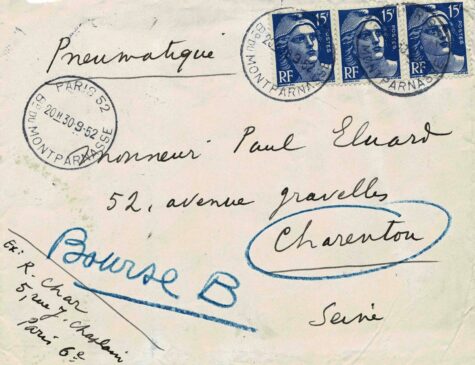 Pneumatique
15F
POSTES
RF
15F
POSTES
RF
15F
POSTES
RF
Bd DU MONTPARNASSE
PARNASSE
PARIS 52
20H30 -9-52
Bd DU MONTPARNASSE
Monsieur Paul Eluard
52, avenue gravelles
Charenton
Seine
Bourse B
Ex: R. Char
5, rue J. Chaplain
Paris 6e